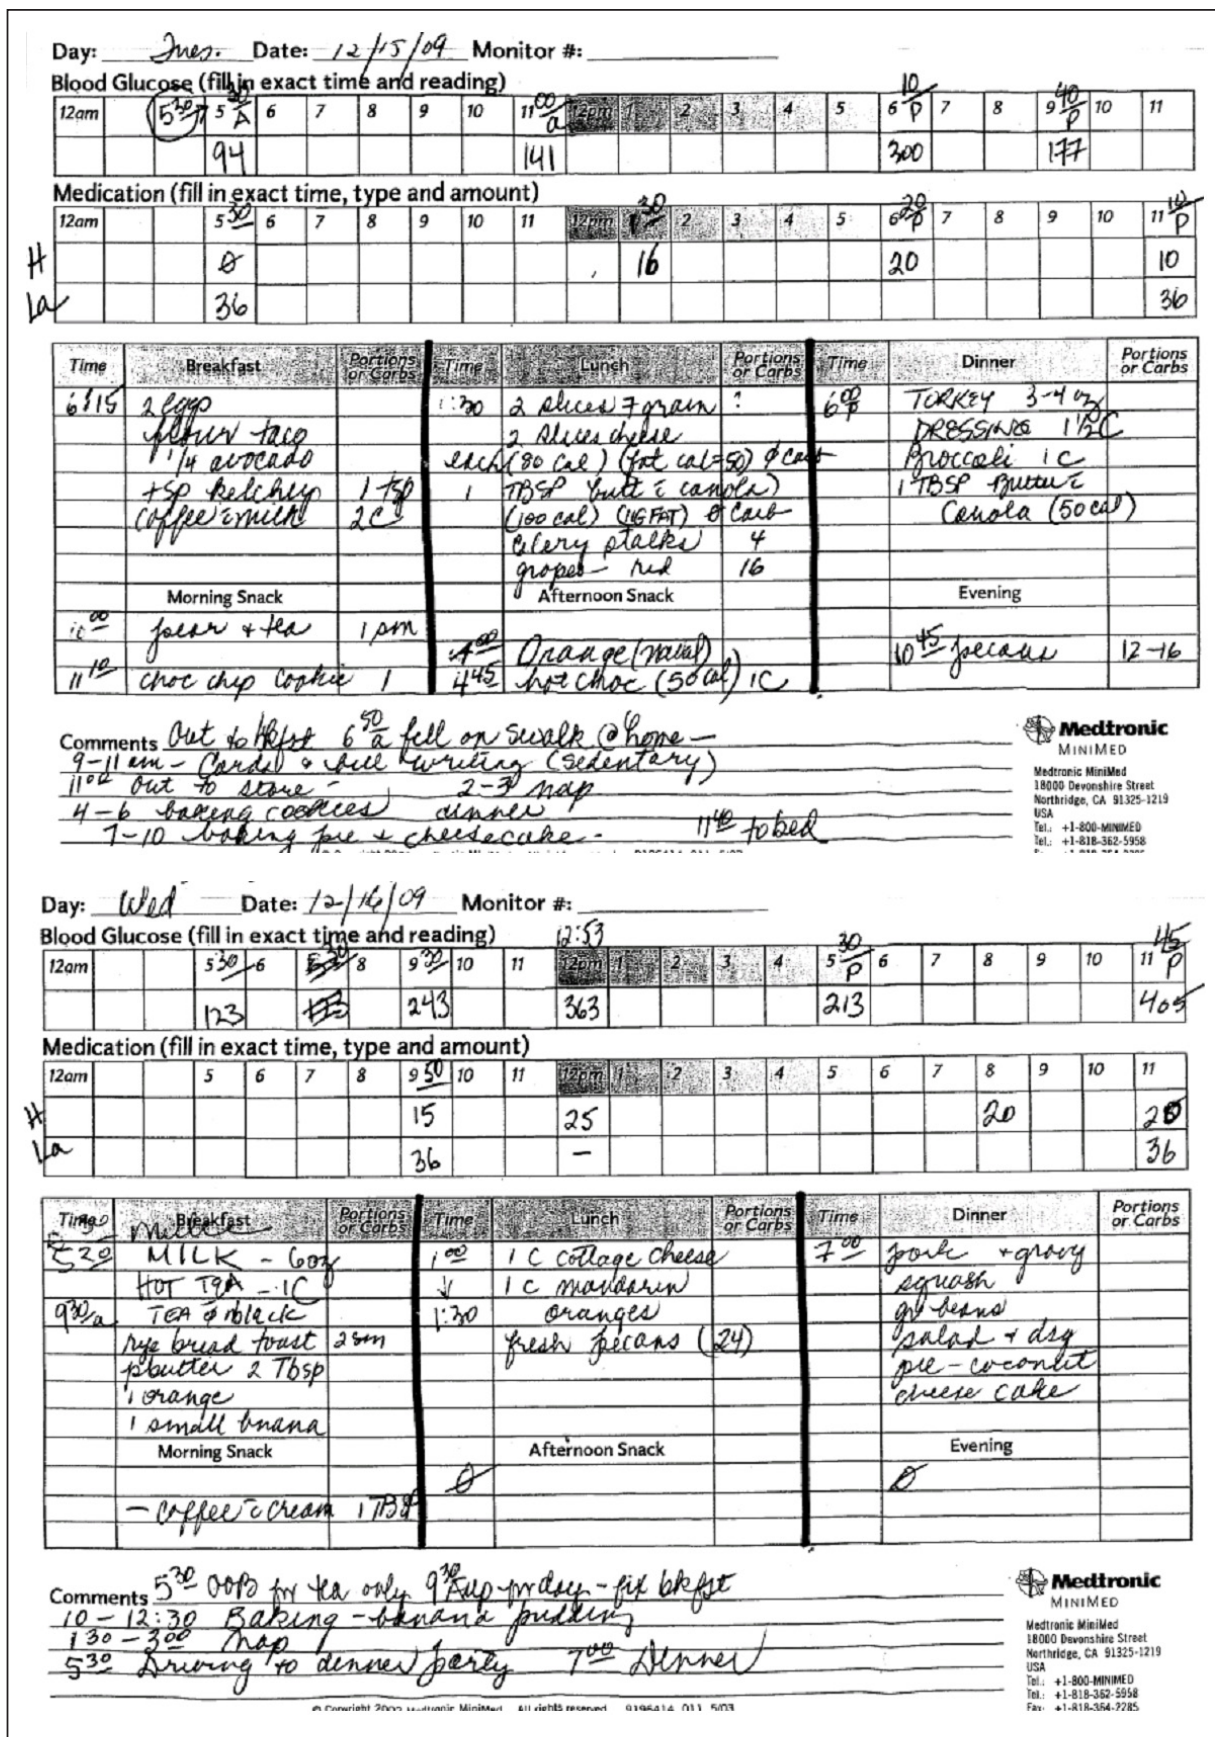 Day: Tues. Date: 12/15/09 Monitor #:
Blood Glucose (fill in exact time and reading)
12am 5 30 5 30 A 6 7 8 9 10 11 00 a 12pm 1 2 3 4 5 6 10 P 7 8 9 40 P 10 11
94 141 300 177
Medication (fill in exact time, type and amount)
12am 5 30 6 7 8 9 10 11 12pm 1 30 2 3 4 5 6 20 P 7 8 9 10 11 10 P
H 0 16 20 10
La 36 36
Time Breakfast Portions or Carbs Time Lunch Portions or Carbs Time Dinner Portions or Carbs
6:15 2 eggs 1:30 2 slices 7 grain ? 6 00 P TORKEY 3-4 oz
flour taco 2 slices cheese DRESSING 1 1/2 C
1/4 avocado each (80 cal) (fat cal=50) 0 carb Broccoli 1 C
tsp ketchup 1 tsp 1 TBSP butt c canola) 1 TBSP Butter c
coffee c milk 2C (100 cal) (11G FAT) 0 Carb Canola (50 cal)
celery stalks 4
grapes - red 16
Morning Snack Afternoon Snack Evening
00 pear + tea 1 sm
4 00 Orange (naval) 10 45 pecans 12-16
11 10 choc chip cookie 1 4 45 hot choc (50 cal) 1C
Comments Out to bkfst 6 50 a fell on swalk @ home -
9-11 am - Cards & bill writing (sedentary)
11 00 out to store - 2-3 nap
4-6 baking cookies dinner
7-10 baking pie & cheesecake - 11 40 to bed
Medtronic
MINIMED
Medtronic MiniMed
18000 Devonshire Street
Northridge, CA 91325-1219
USA
Tel.: +1-800-MINIMED
Tel.: +1-818-362-5958
Day: Wed Date: 12/16/09 Monitor #:
Blood Glucose (fill in exact time and reading) 12:53
12am 5 30 6 8 9 30 10 11 12pm 1 2 3 4 5 30 P 6 7 8 9 10 11 45 P
123 243 363 213 405
Medication (fill in exact time, type and amount)
12am 5 6 7 8 9 50 10 11 12pm 1 2 3 4 5 6 7 8 9 10 11
H 15 25 20 20
La 36 - 36
Time Breakfast Portions or Carbs Time Lunch Portions or Carbs Time Dinner Portions or Carbs
5 30 MILK - 6oz 1 00 1 C cottage cheese 7 00 pork + gravy
HOT TEA - 1C 1 C mandarin squash
9 30 a TEA black 1:30 oranges gr beans
rye bread toast 2 sm fresh pecans (24) salad + dsg
pbutter 2 Tbsp pie - coconut
1 orange cheese cake
1 small bnana
Morning Snack Afternoon Snack Evening
0 0
- coffee c cream 1 TBSP
Comments 5 30 OOB for tea only 9 30 A up for day - fix bkfst
10 - 12:30 Baking - banana pudding
1 30 - 3 00 nap
5 30 Driving to dinner party 7 00 Dinner
Medtronic
MINIMED
Medtronic MiniMed
18000 Devonshire Street
Northridge, CA 91325-1219
USA
Tel.: +1-800-MINIMED
Tel.: +1-818-362-5958
Fax: +1-818-364-2285
© Copyright 2002 Medtronic MiniMed. All rights reserved. 9196414-011 5/03